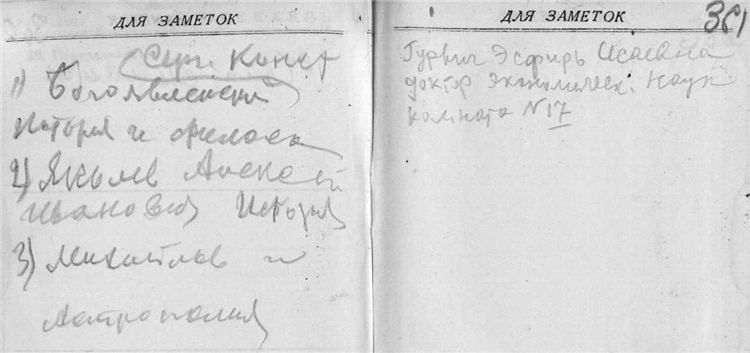 ДЛЯ ЗАМЕТОК
(Серг. Конст
1) Богоявленский
История и филос
2) Яковлев Алексей
Иванович История
3) Михайлов и
Астрономия
ДЛЯ ЗАМЕТОК
361
Гурвич Эсфирь Исаевна
доктор экономическ. Наук
комната N 17